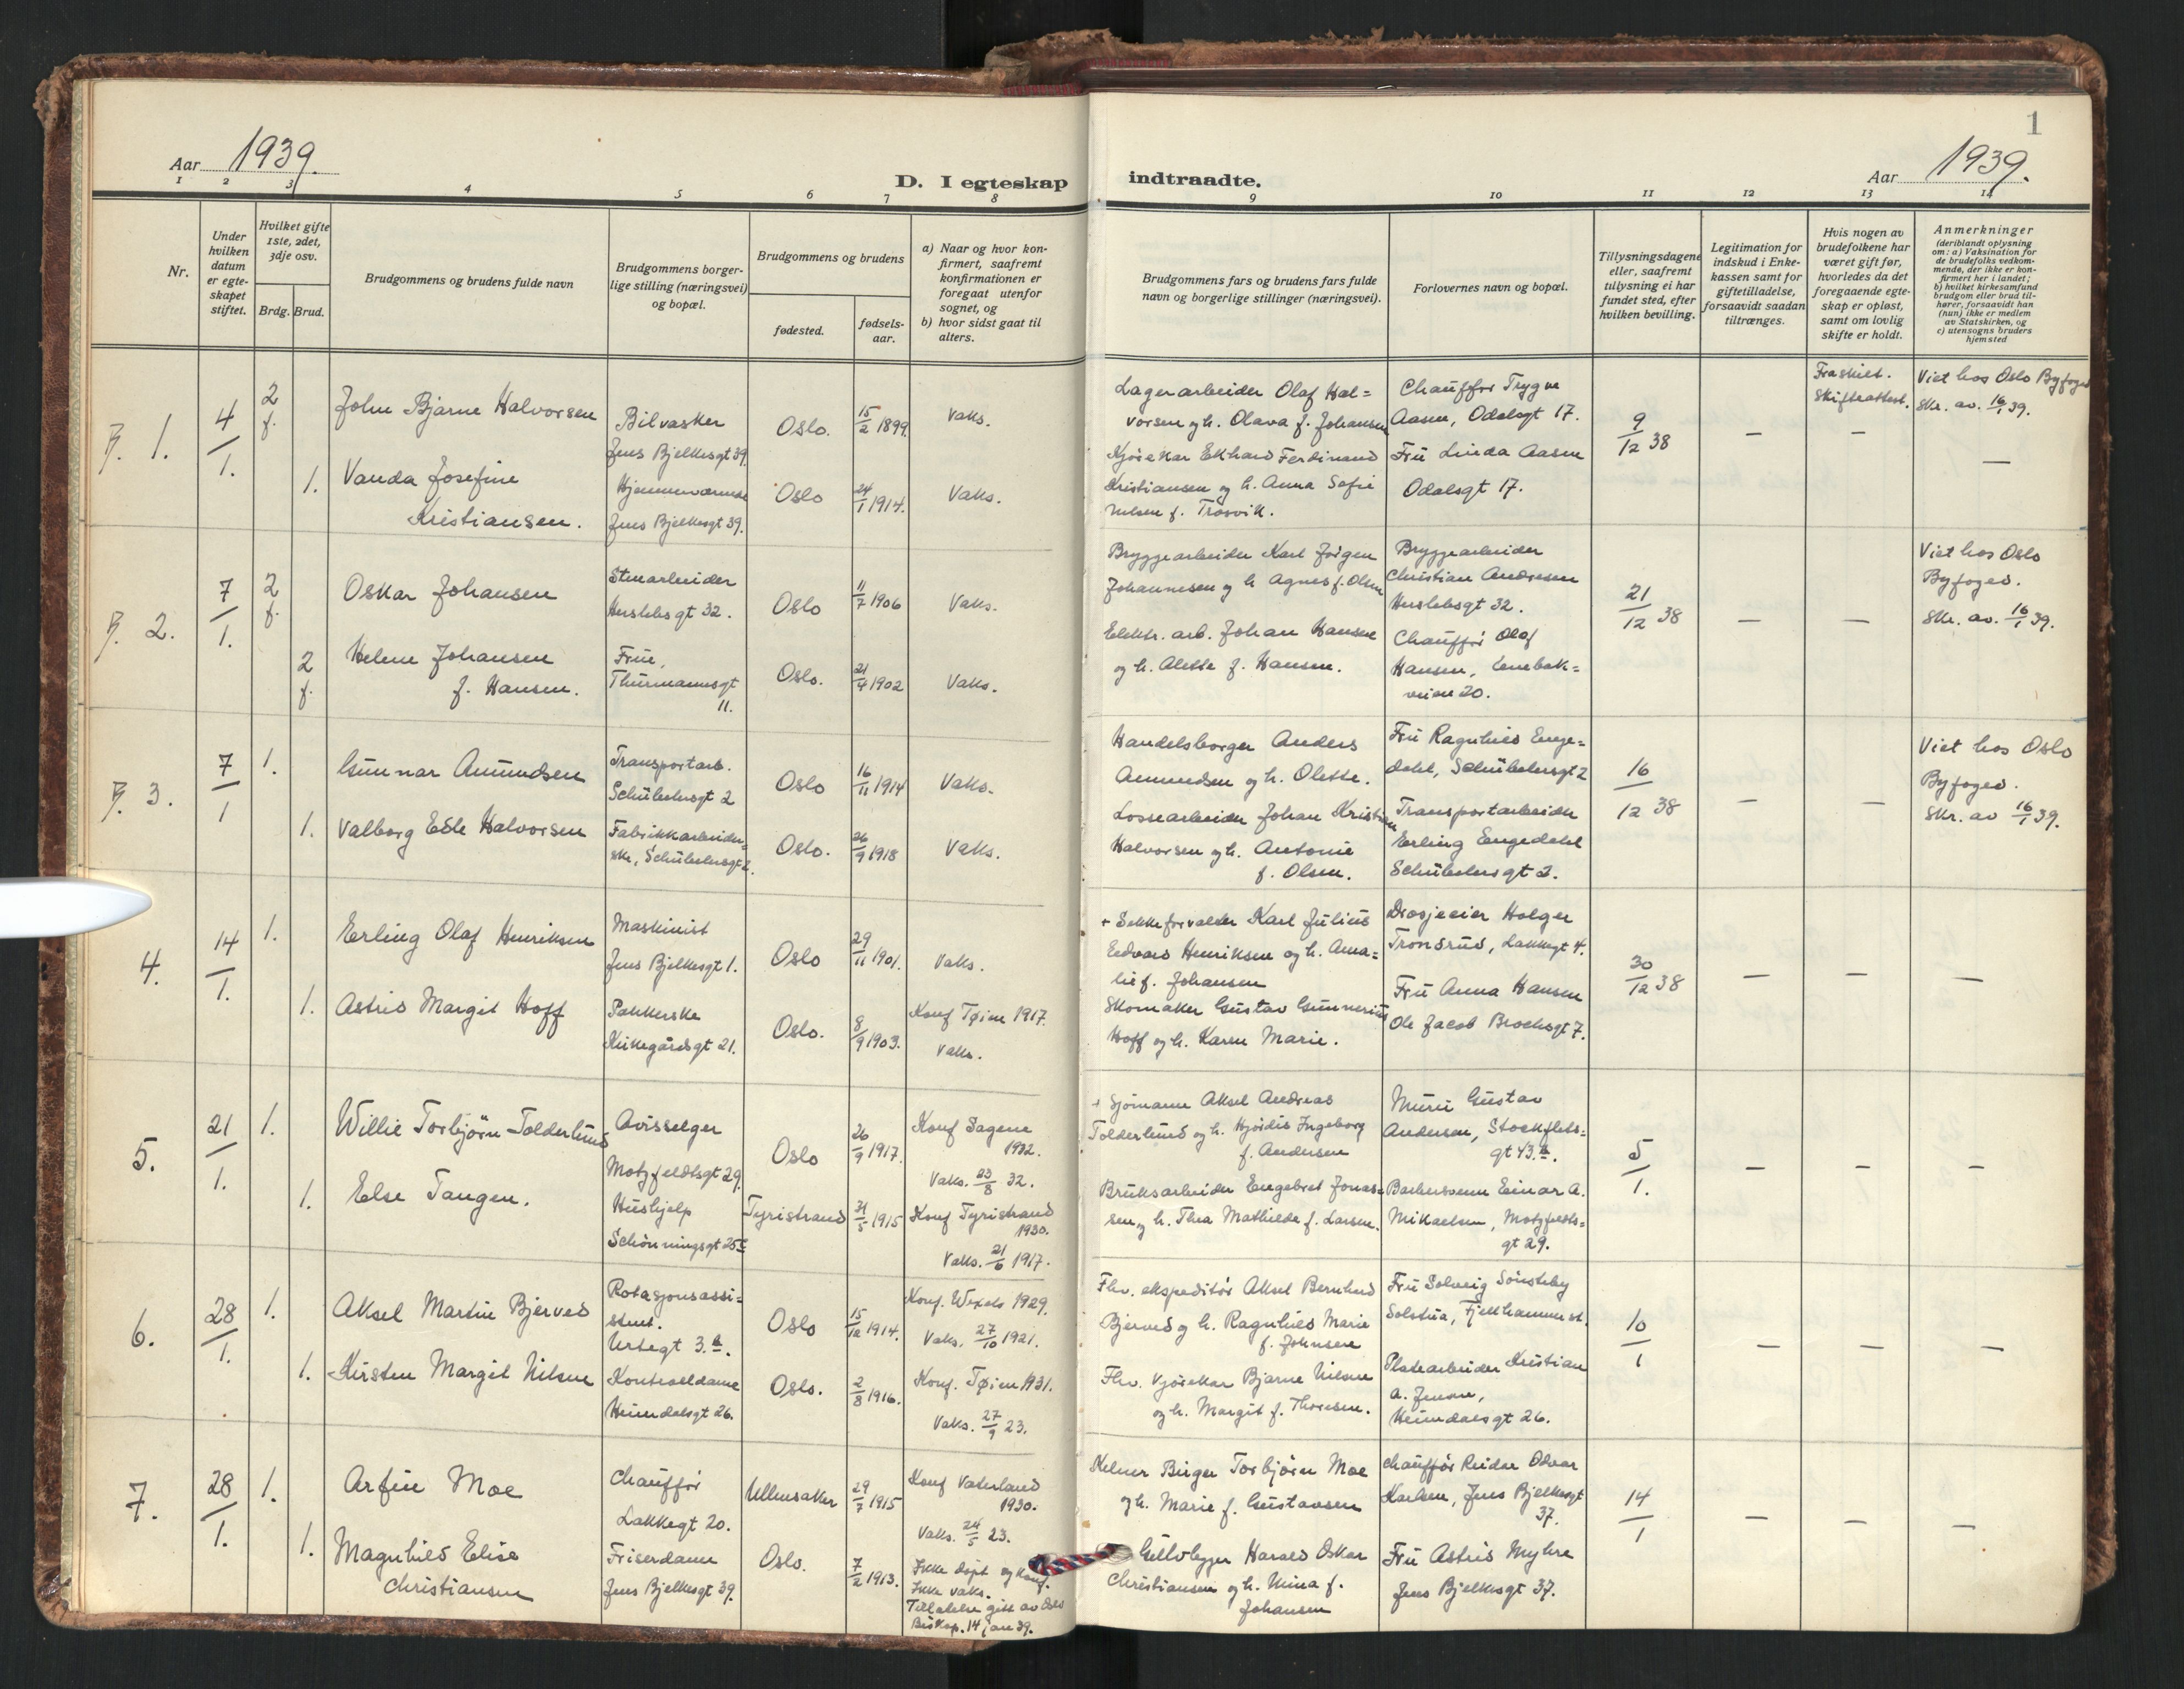 1
Aar 1939.
D. I egteskap indtraadte.
Aar 1939.
1 2 3 4 5 6 7 8 9 10 11 12 13 14
Nr.
Under
hvilken
datum
er egte-
skapet
stiftet.
Hvilket gifte
1ste, 2det,
3dje osv.
Brdg. Brud.
Brudgommens og brudens fulde navn
Brudgommens borger-
lige stilling (næringsvei)
og bopæl.
Brudgommens og brudens
fødested.
fødsels-
aar.
a) Naar og hvor kon-
firmert, saafremt
konfirmationen er
foregaat utenfor
sognet, og
b) hvor sidst gaat til
alters.
Brudgommens fars og brudens fars fulde
navn og borgerlige stillinger (næringsvei).
Forlovernes navn og bopæl.
Tillysningsdagene
eller, saafremt
tillysning ei har
fundet sted, efter
hvilken bevilling.
Legitimation for
indskud i Enke-
kassen samt for
giftetilladelse,
forsaavidt saadan
tiltrænges.
Hvis nogen av
brudefolkene har
været gift før,
hvorledes da det
foregaaende egte-
skap er opløst,
samt om lovlig
skifte er holdt.
Anmerkninger
(deriblandt oplysning
om: a) Vaksination for
de brudefolks vedkom-
mende, der ikke er kon-
firmert her i landet;
b) hvilket kirkesamfund
brudgom eller brud til-
hører, forsaavidt han
(hun) ikke er medlem
av Statskirken, og
c) utensogns bruders
hjemsted
1.
4/1.
2 f.
John Bjarne Halvorsen
Bilvasker
Jens Bjelkesgt 39.
Oslo.
15/2 1899.
Vaks.
1.
Vanda Josefine
Kristiansen.
Hjemmeværende
Jens Bjelkesgt 39.
Oslo
24/1 1914.
Vaks.
Lagerarbeider Olaf Hal=
vorsen og h. Olava f. Johansen
Kjørekar Ekhard Ferdinand
Kristiansen og h. Anna Sofie
Nilsen f. Trosvik.
Chauffør Trygve
Aasen, Odalsgt 17.
Fru Linda Aasen
Odalsgt 17.
9/12 38
—
—
Fraskilt.
Skifteattest.
Viet hos Oslo Byfoged
Skr. av. 16/1 39.
—
2.
7/1.
2 f.
Oskar Johansen
Stenarbeider
Herslebsgt 32.
Oslo
11/7 1906
Vaks.
2 f.
Helene Johansen
f. Hansen.
Frue,
Thurmannsgt
11.
Oslo.
21/4 1902
Vaks.
Bryggearbeider Karl Jørgen
Johannesen og h Agnes f. Olsen
Elektr. arb. Johan Hansen
og h. Alette f. Hansen.
Bryggearbeider
Christian Andresen
Herslebsgt 32.
Chauffør Olaf
Hansen, Enebak=
veien 20.
21/12 38
—
—
Viet hos Oslo
Byfoged.
Skr. av. 16/1 39.
3.
7/1
1.
Gunnar Amundsen
Transportarb.
Schübelersgt 2
Oslo
16/11 1914
Vaks.
1.
Valborg Edle Halvorsen
Fabrikkarbeider=
ske, Schübelersgt 2.
Oslo.
26/9 1918
Vaks.
Handelsborger Anders
Amundsen og h. Olette.
Lossearbeider Johan Kristian
Halvorsen og h. Antonie
f. Olsen.
Fru Ragnhild Enge=
dahl, Schübelersgt 2
Transportarbeider
Erling Engedahl
Schübelersgt 2.
16/12 38
—
—
Viet hos Oslo
Byfoged.
Skr. av 16/1 39.
4.
14/1.
1.
Erling Olaf Henriksen
Maskinist
Jens Bjelkesgt 1.
Oslo
29/11 1901.
Vaks.
1.
Astrid Margit Hoff
Pakkerske
Kirkegårdsgt 21.
Oslo.
8/9 1903.
Konf Tøien 1917.
Vaks.
+ Sekkeforvalter Karl Julius
Edvard Henriksen og h. Ama=
lie f. Johansen
Skomaker Gustav Gunnerius
Hoff og h. Karen Marie.
Drosjeeier Holger
Tronsrud, Lakkegt 4.
Fru Anna Hansen
Ole Jacob Brochsgt 7.
30/12 38
—
—
—
5.
21/1.
1.
Willie Torbjørn Tolderlund
Avisselger
Motzfeldtsgt 29.
Oslo
26/9 1917.
Konf Sagene
1932.
Vaks. 23/8 32.
1.
Else Tangen.
Hushjelp
Schønningsgt 25c
Tyristrand
31/5 1915
Konf Tyristrand
1930.
Vaks. 21/6 1917.
+ Sjømann Aksel Andreas
Tolderlund og h. Hjørdis Ingeborg
f. Andersen
Bruksarbeider Engebret Jonas=
sen og h. Thea Mathilde f. Larsen.
Murer Gustav
Andersen, Stockflets=
gt 43.b.
Barbersvenn Einar A.
Mikaelsen, Motzfeldts=
gt 29.
5/1.
—
—
—
6.
28/1.
1.
Aksel Martin Bjerved
Rotasjonsassi=
stent.
Urtegt 3.b.
Oslo
15/12 1914.
Konf. Wexels 1929.
Vaks. 27/10 1921.
1.
Kirsten Margit Nilsen
Kontroldame
Heimdalsgt 26.
Oslo.
2/8 1916.
Konf. Tøien 1931.
Vaks. 27/9 23.
Fhv. ekspeditør Aksel Bernhard
Bjerved og h. Ragnhild Marie
f. Johnsen
Fhv. kjørekar Bjarne Nilsen
og h. Margit f. Thoresen.
Fru Solveig Sønsteby
Solstua, Fjellhammer st.
Platearbeider Kristian
A. Jensen,
Heimdalsgt 26.
10/1
—
—
—
7.
28/1.
1.
Arfin Moe
Chauffør
Lakkegt 20.
Ullensaker
29/7 1915
Konf Vaterland
1930.
Vaks. 24/5 23.
1.
Magnhild Elise
Christiansen
Friserdame
Jens Bjelkesgt 39.
Oslo.
7/2 1913.
Ikke døpt og konf.
Ikke vaks.
Tillatelse gitt av Oslo
Biskop. 14 jan 39.
Kelner Birger Torbjørn Moe
og h. Marie f. Gustavsen
Gullvlegger Harald Oskar
Christiansen og h. Nina f.
Johansen
Chauffør Reidar Odvar
Karlsen, Jens Bjelkesgt
37.
Fru Astrid Myhre
Jens Bjelkesgt 37.
14/1
—
—
—